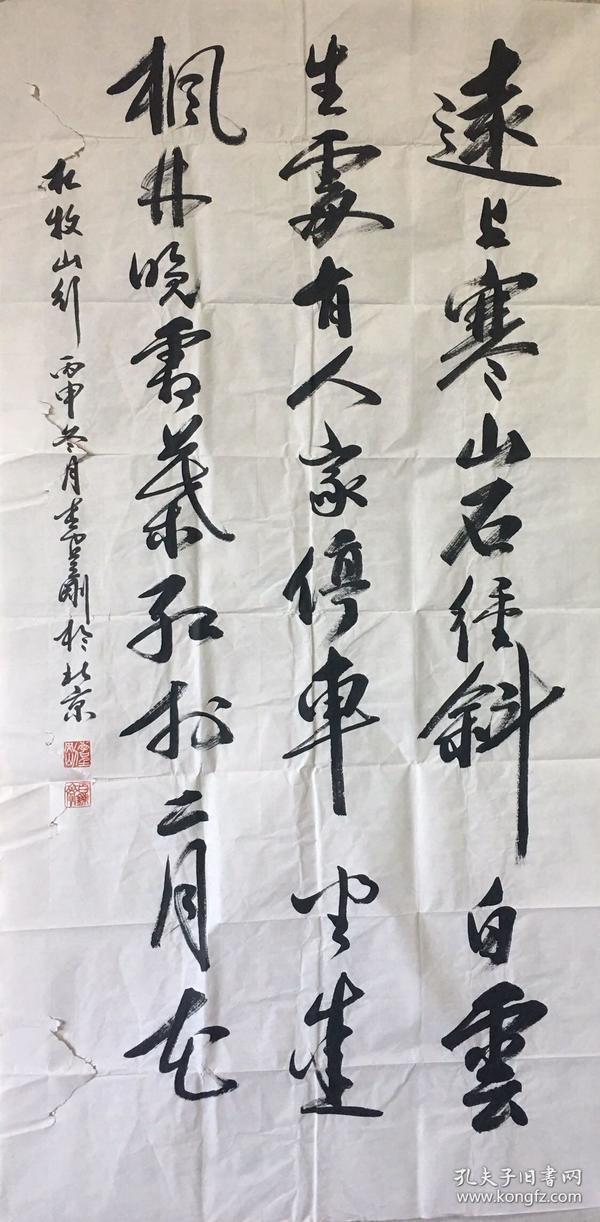 遠上寒山石徑斜白雲
生處有人家停車坐愛
楓林晚霜葉紅於二月花
杜牧山行 丙申冬月李剛於北京
孔夫子旧書网
www.kongfz.com